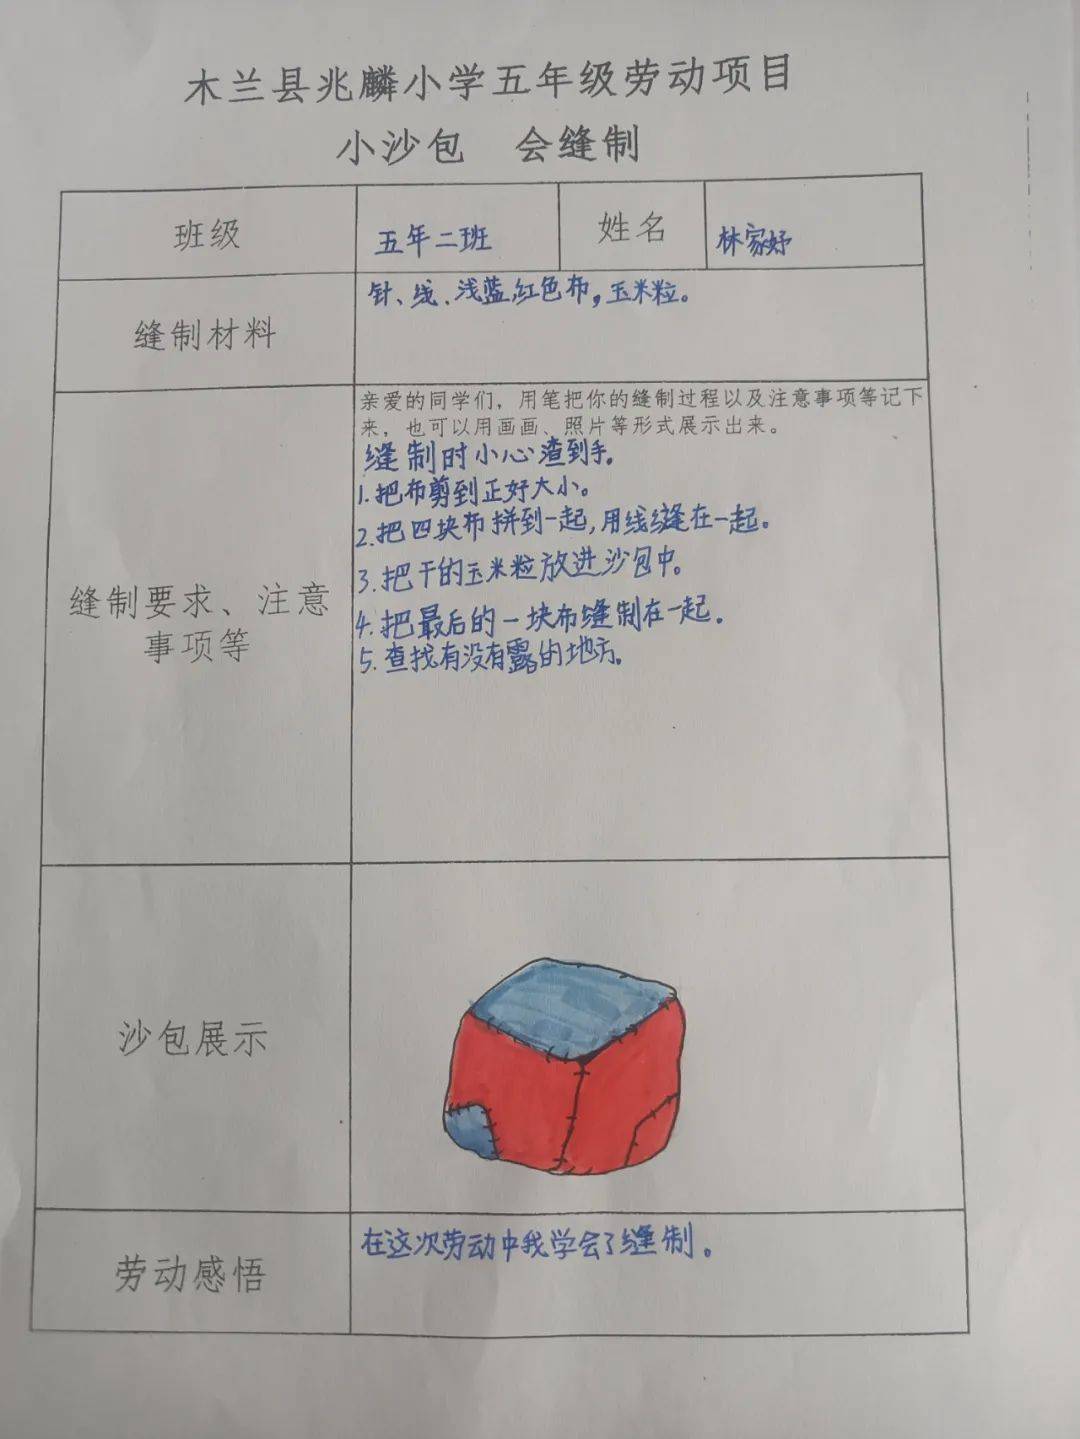 木兰县兆麟小学五年级劳动项目
小沙包 会缝制
班级 五年二班 姓名 林家妤
缝制材料
针、线、浅蓝,红色布,玉米粒。
亲爱的同学们,用笔把你的缝制过程以及注意事项等记下
来,也可以用画画、照片等形式展示出来。
缝制时小心渣到手。
1.把布剪到正好大小。
2.把四块布拼到一起,用线缝在一起。
3.把干的玉米粒放进沙包中。
4.把最后的一块布缝制在一起。
5.查找有没有露的地方。
缝制要求、注意
事项等
沙包展示
劳动感悟
在这次劳动中我学会了缝制。